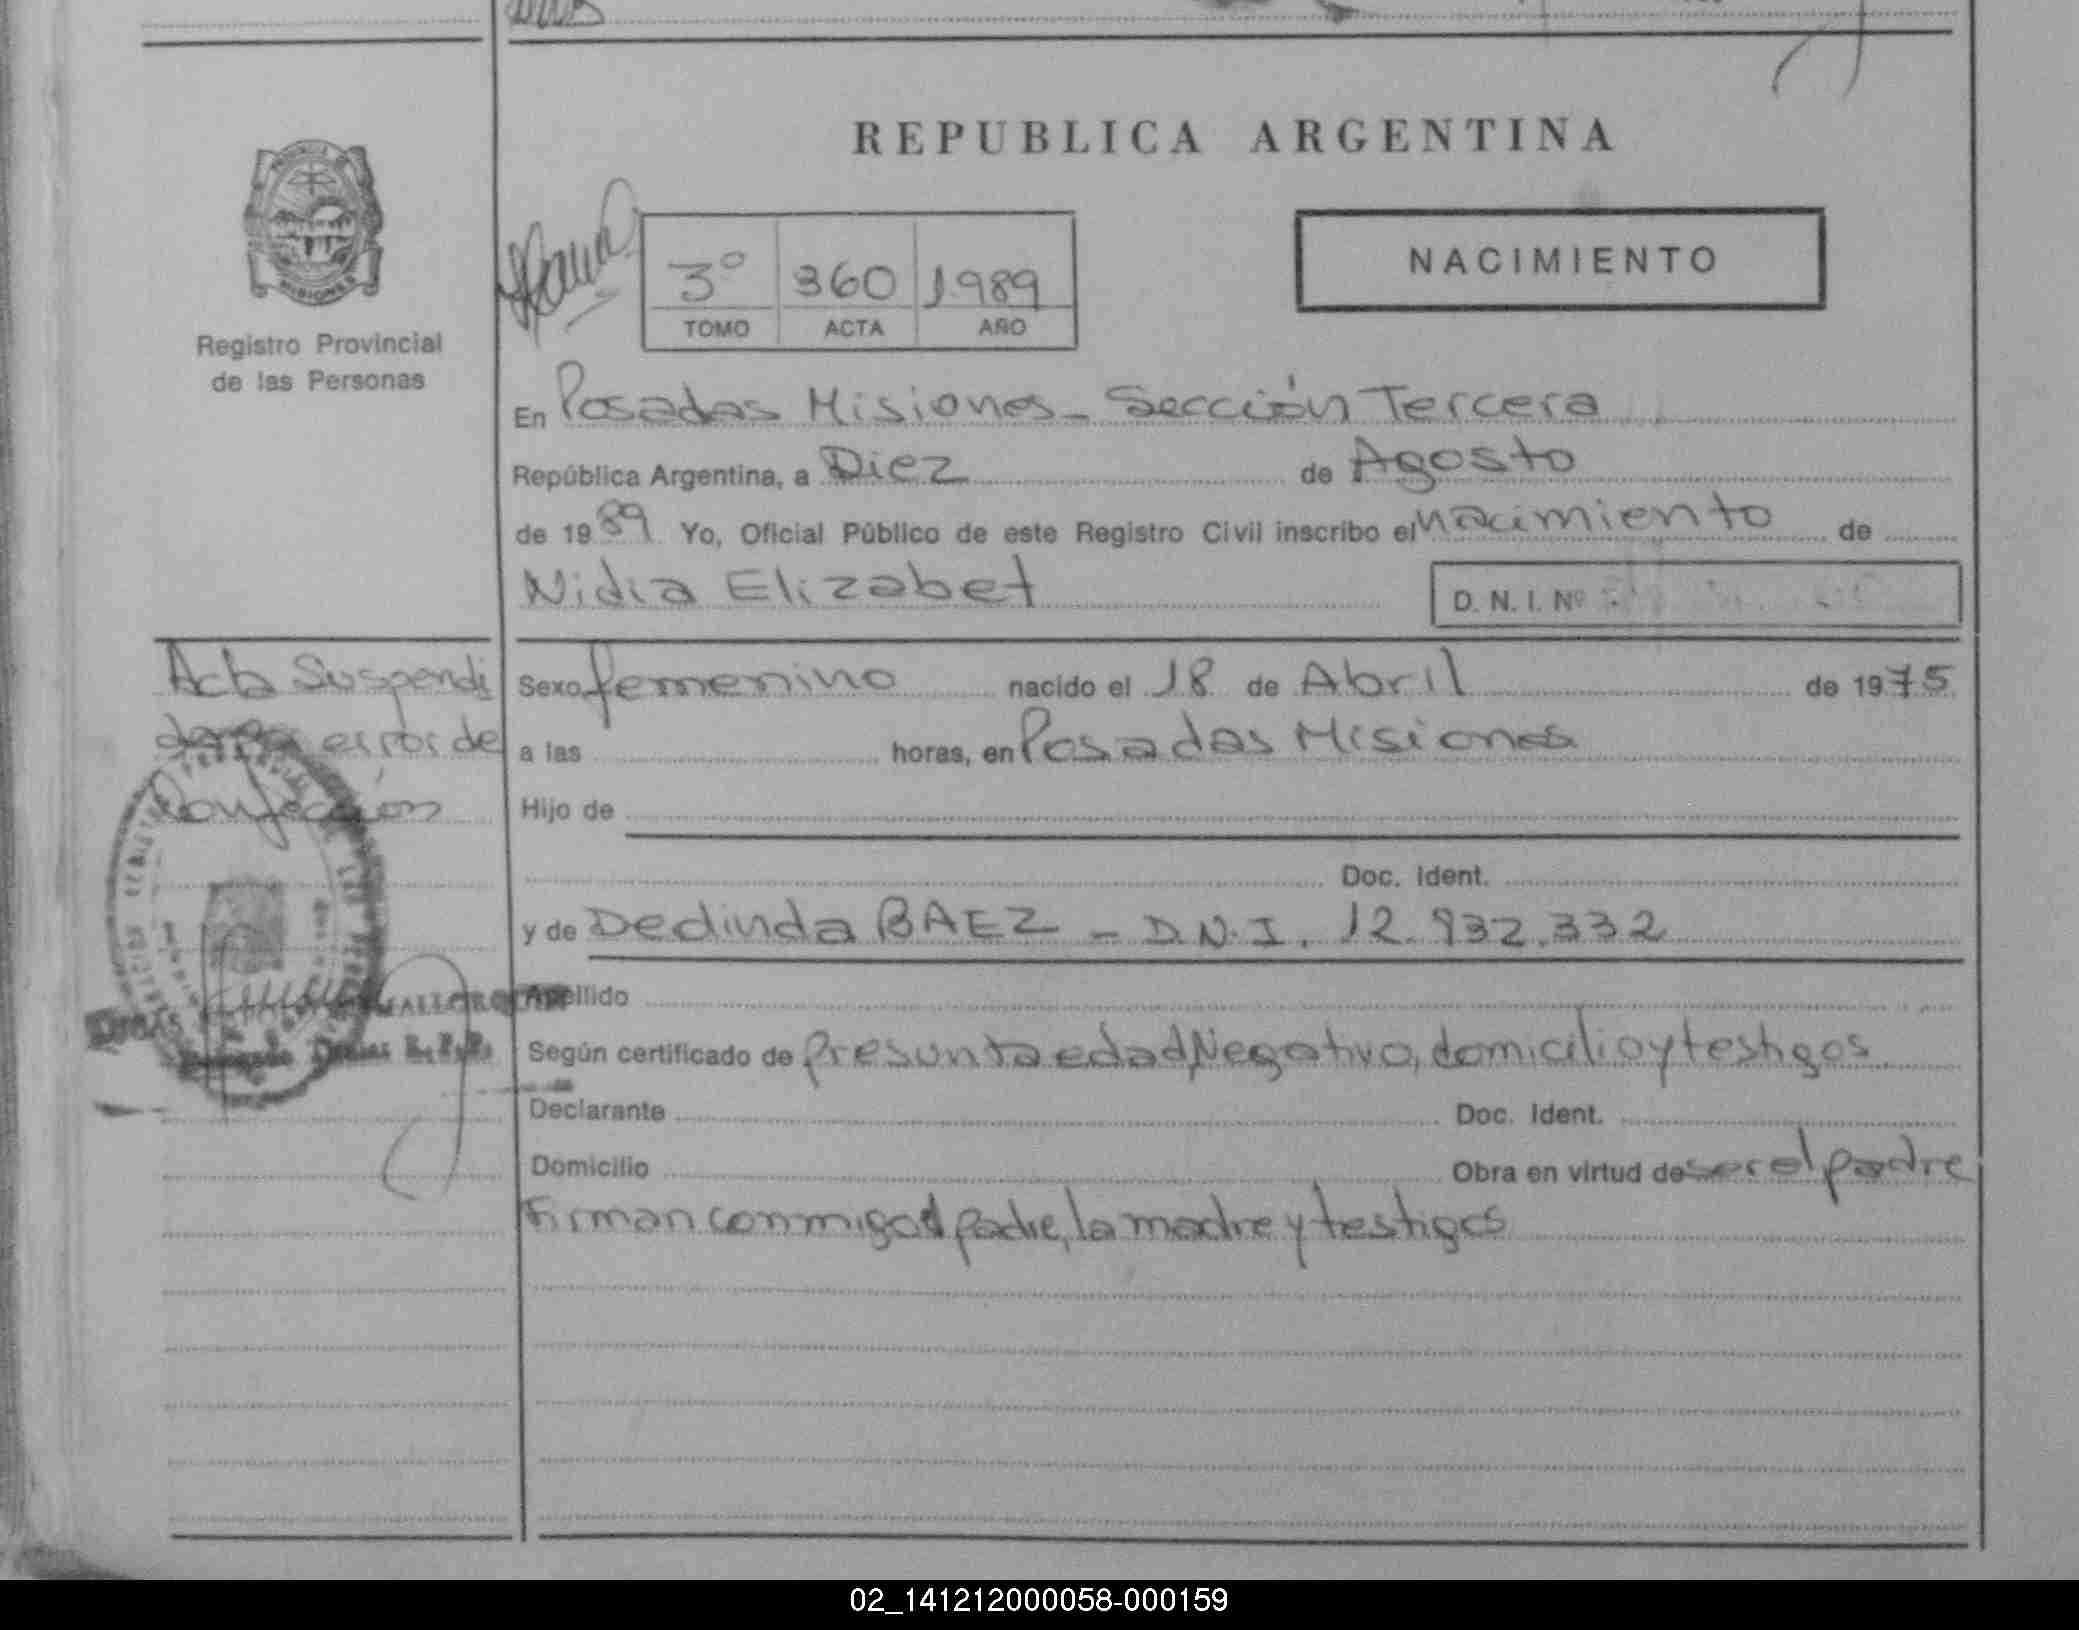 REPUBLICA ARGENTINA
PROVINCIA DE
MISIONES
Registro Provincial
de las Personas
3º 360 1989
TOMO ACTA AÑO
NACIMIENTO
En Posadas Misiones - Sección Tercera
República Argentina, a Diez de Agosto
de 1989 Yo, Oficial Público de este Registro Civil inscribo el nacimiento de
Nidia Elizabet
D. N. I. Nº
Acta Suspendi
da por error de
Confección
Sexo femenino nacido el 18 de Abril de 1975
a las horas, en Posadas Misiones
Hijo de
Doc. Ident.
y de Dedinda BAEZ - D.N.I. 12.932.332
Apellido
Según certificado de presunta edad, Negativo, domicilio y testigos
Declarante Doc. Ident.
Domicilio Obra en virtud de ser el padre
Firman conmigo el padre, la madre y testigos
02_141212000058-000159